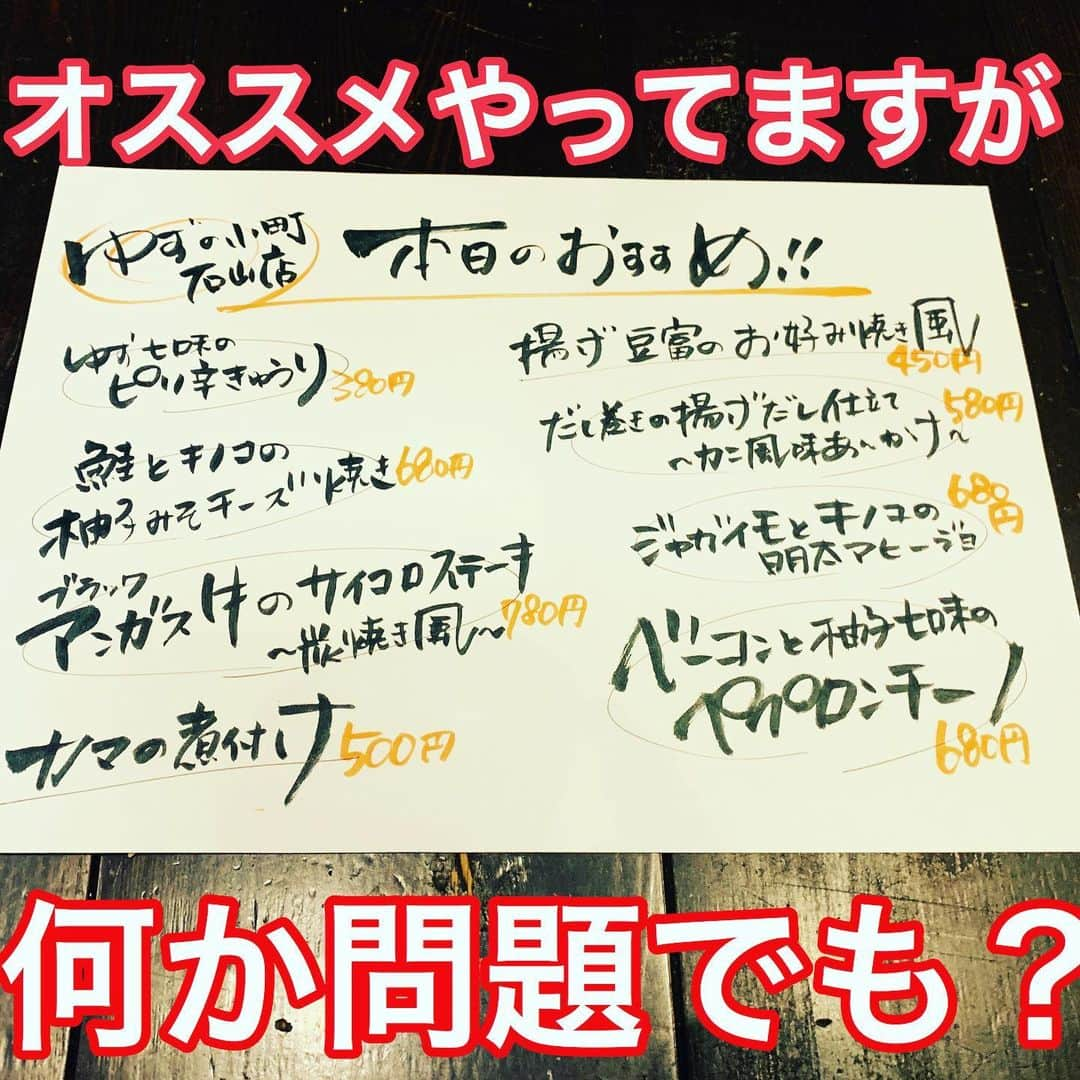 オススメやってますが
ゆずの小町
石山店
本日のおすすめ!!
ゆず七味の
ピリ辛きゅうり 380円
鮭とキノコの
柚子みそチーズ焼き 680円
ブラック
アンガス牛のサイコロステーキ
〜炭焼き風〜 780円
ナマの煮付け 500円
揚げ豆富のお好み焼き風
450円
だし巻きの揚げだし仕立て 580円
〜カニ風味あ〜かけ〜
680円
ジャガイモとキノコの
明太アヒージョ
ベーコンと柚子七味の
ペペロンチーノ
680円
何か問題でも？